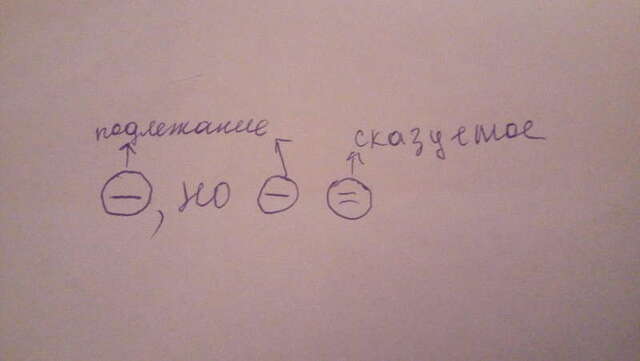 подлежание сказуемое
⊖, но ⊖ ⊜